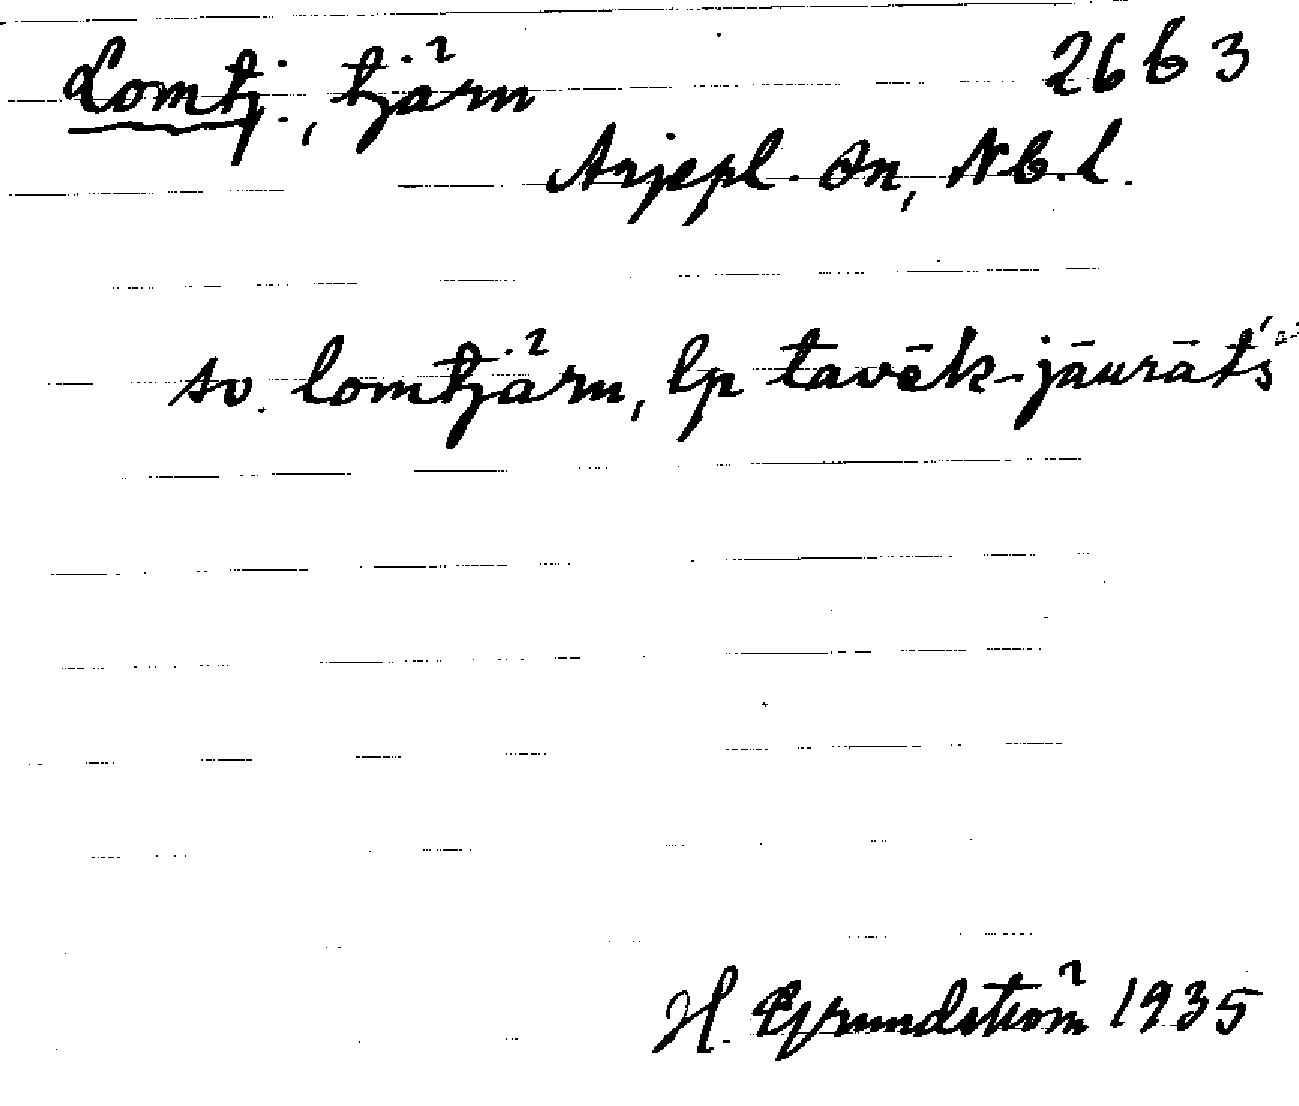 Lomtj., tjärn 2663
Arjepl. sn, Nb. l.
sv. lomtjärn, lp tavēk-jāurāts
H. Grundström 1935